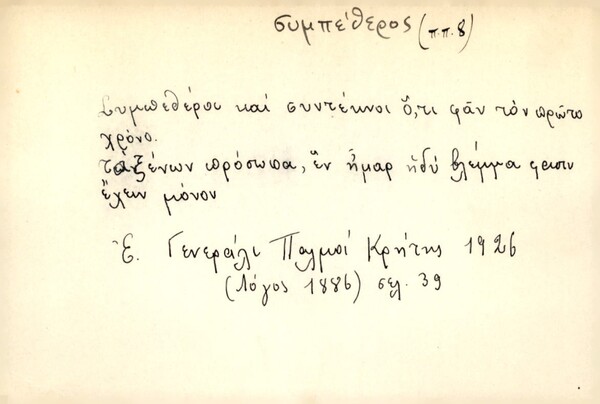 συμπέθερος (π.π. 8)
Συμπεθέροι καί συντέκνοι ὅ,τι φᾶν τὸν πρῶτο
χρόνο.
τῶν ξένων πρόσωπα, ἓν ἦμαρ ἡδύ βλέμμα φασιν
ἔχειν μόνον
Ἐ. Γενεράλι Παλμοί Κρήτης 1926
(Λόγος 1886) σελ. 39